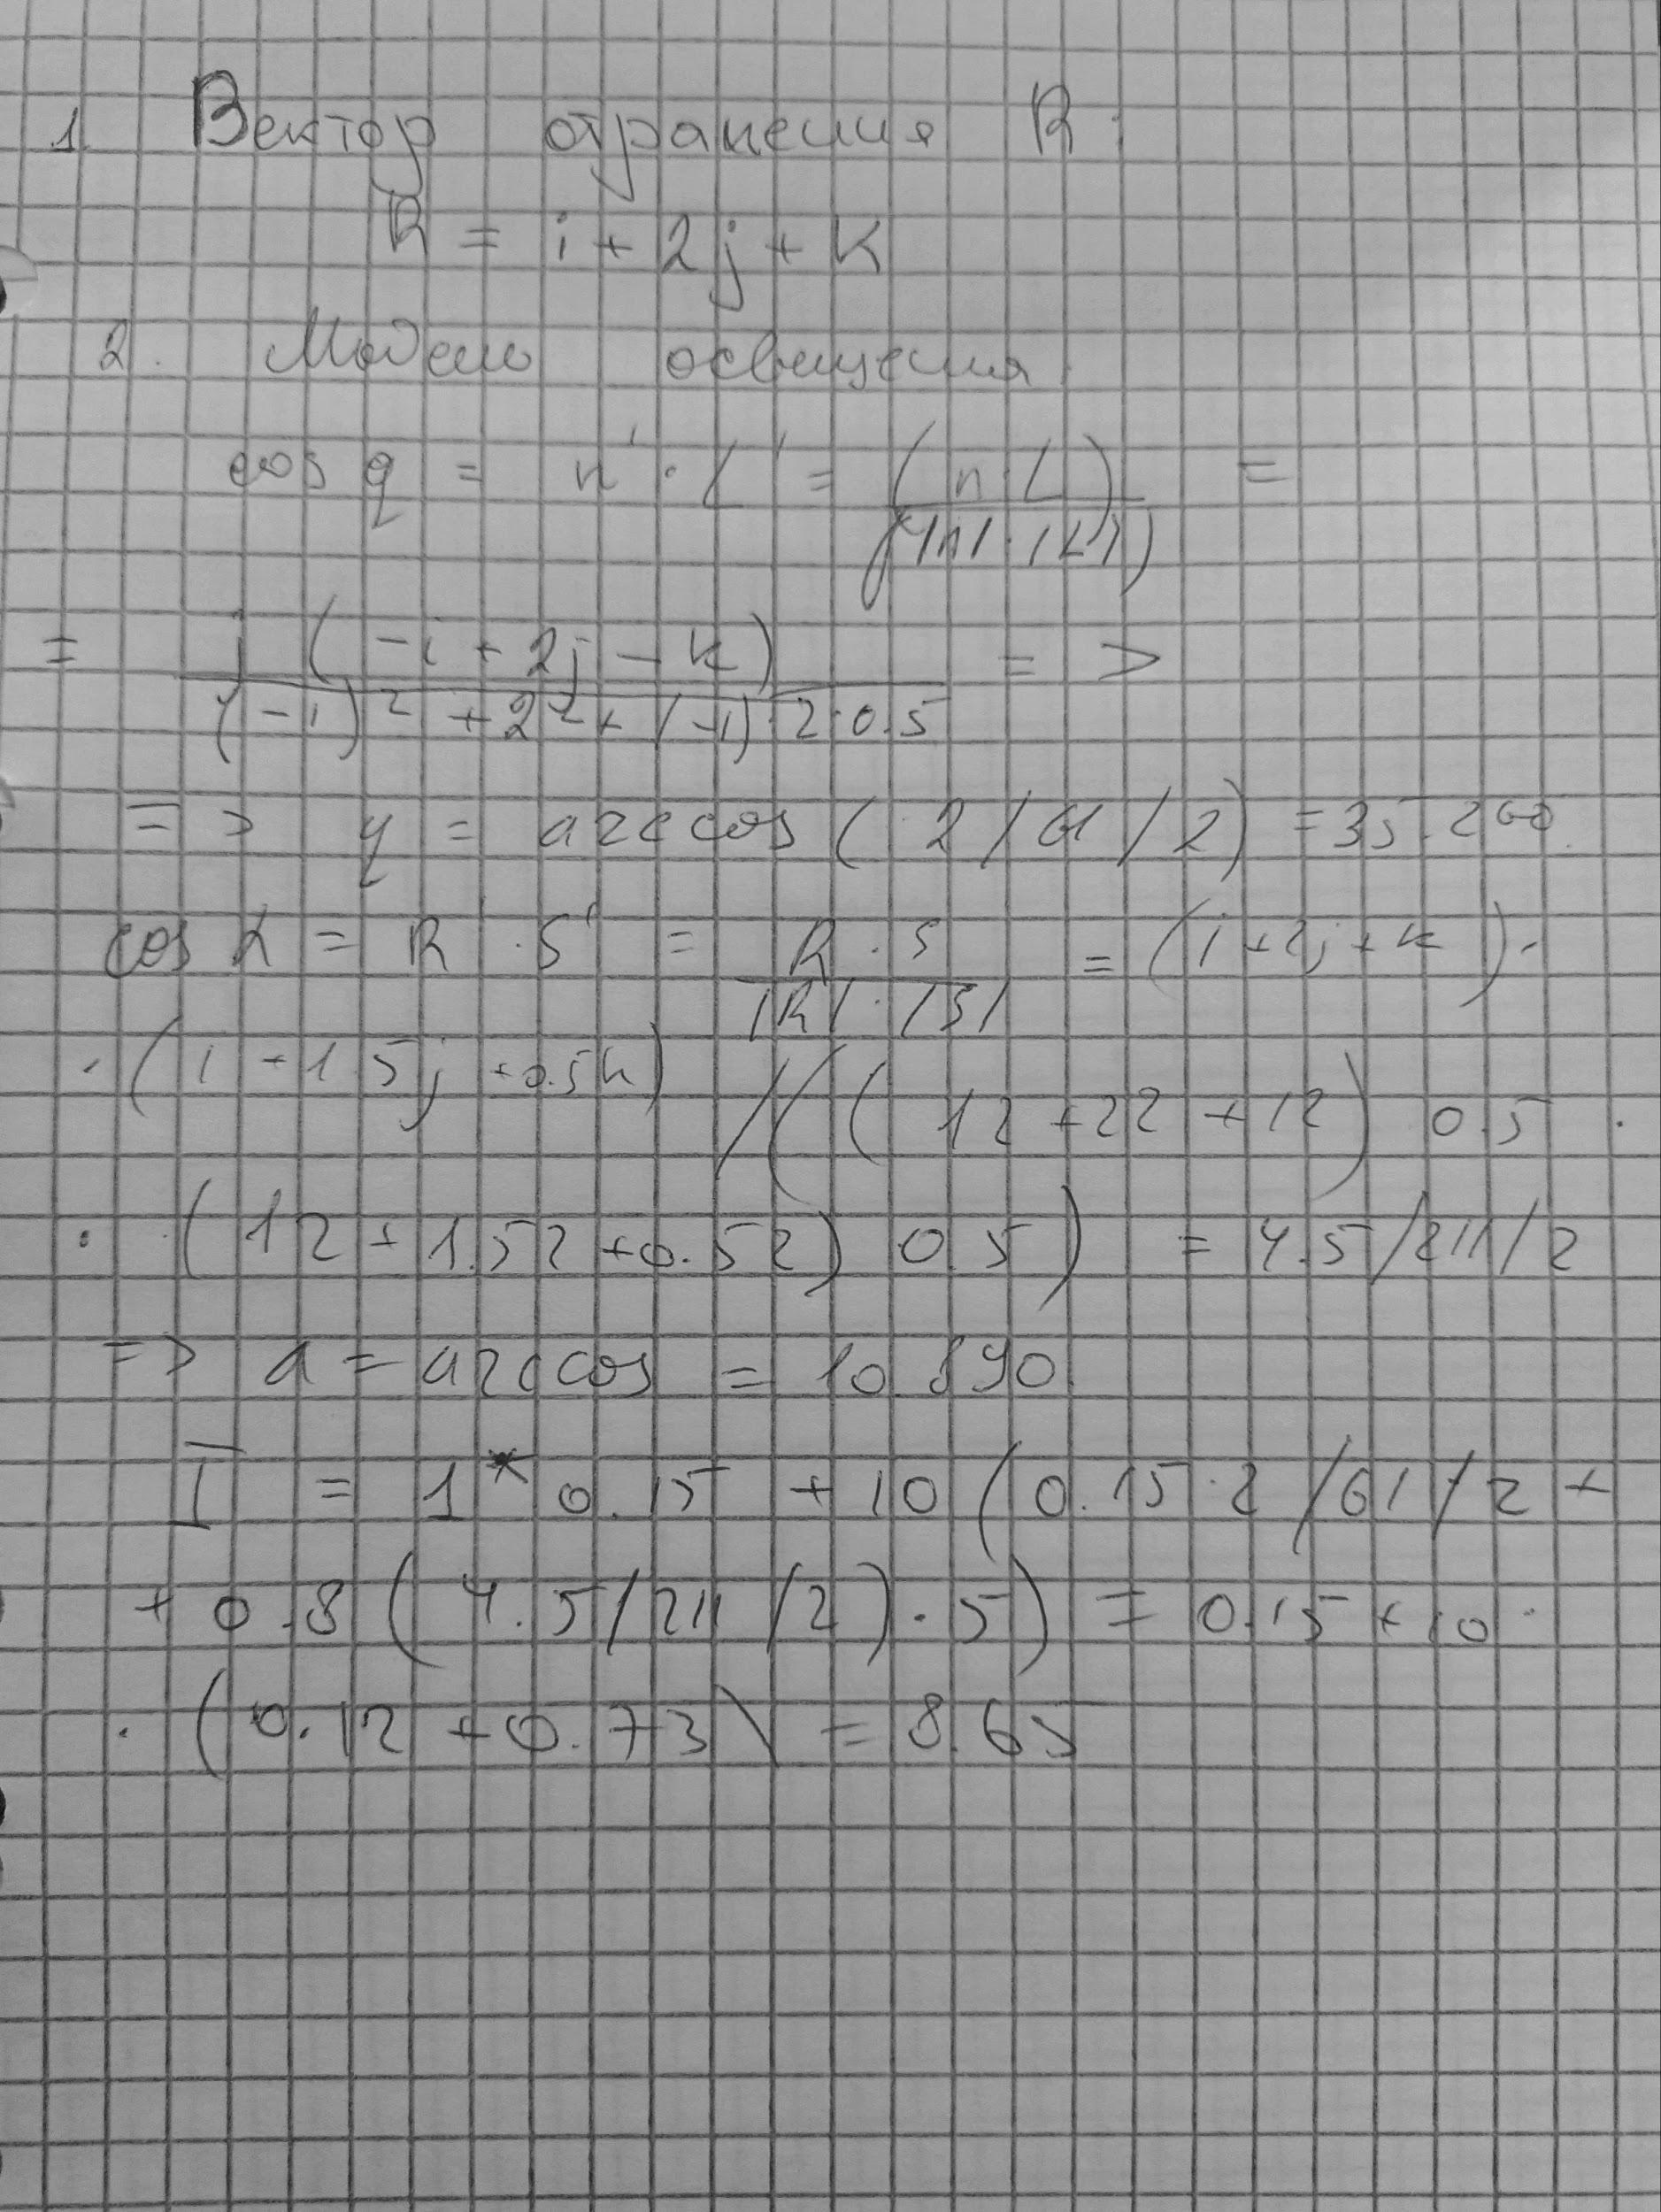 1. Вектор отражения R:
R = i + 2j + k
2. Модель освещения
cos q = n' · L' = (n · L) / (|n| · |L|) =
= j (-i + 2j - k) / (-1)² + 2² + (-1) · 2 · 0.5 = >
=> q = arccos (2/61/2) = 35.260
cos α = R' · S' = R · S / |R| · |S| = (i + 2j + k) ·
· (i + 1.5j + 0.5k) / (((12 + 22 + 12) 0.5 ·
· (12 + 1.52 + 0.52) 0.5) = 4.5/211/2
=> a = arccos = 10.890
I = 1 * 0.15 + 10 (0.15 · 2/61/2 +
+ 0.8 (4.5/211/2) · 5) = 0.15 + 10 ·
· (0.12 + 0.73) = 8.65